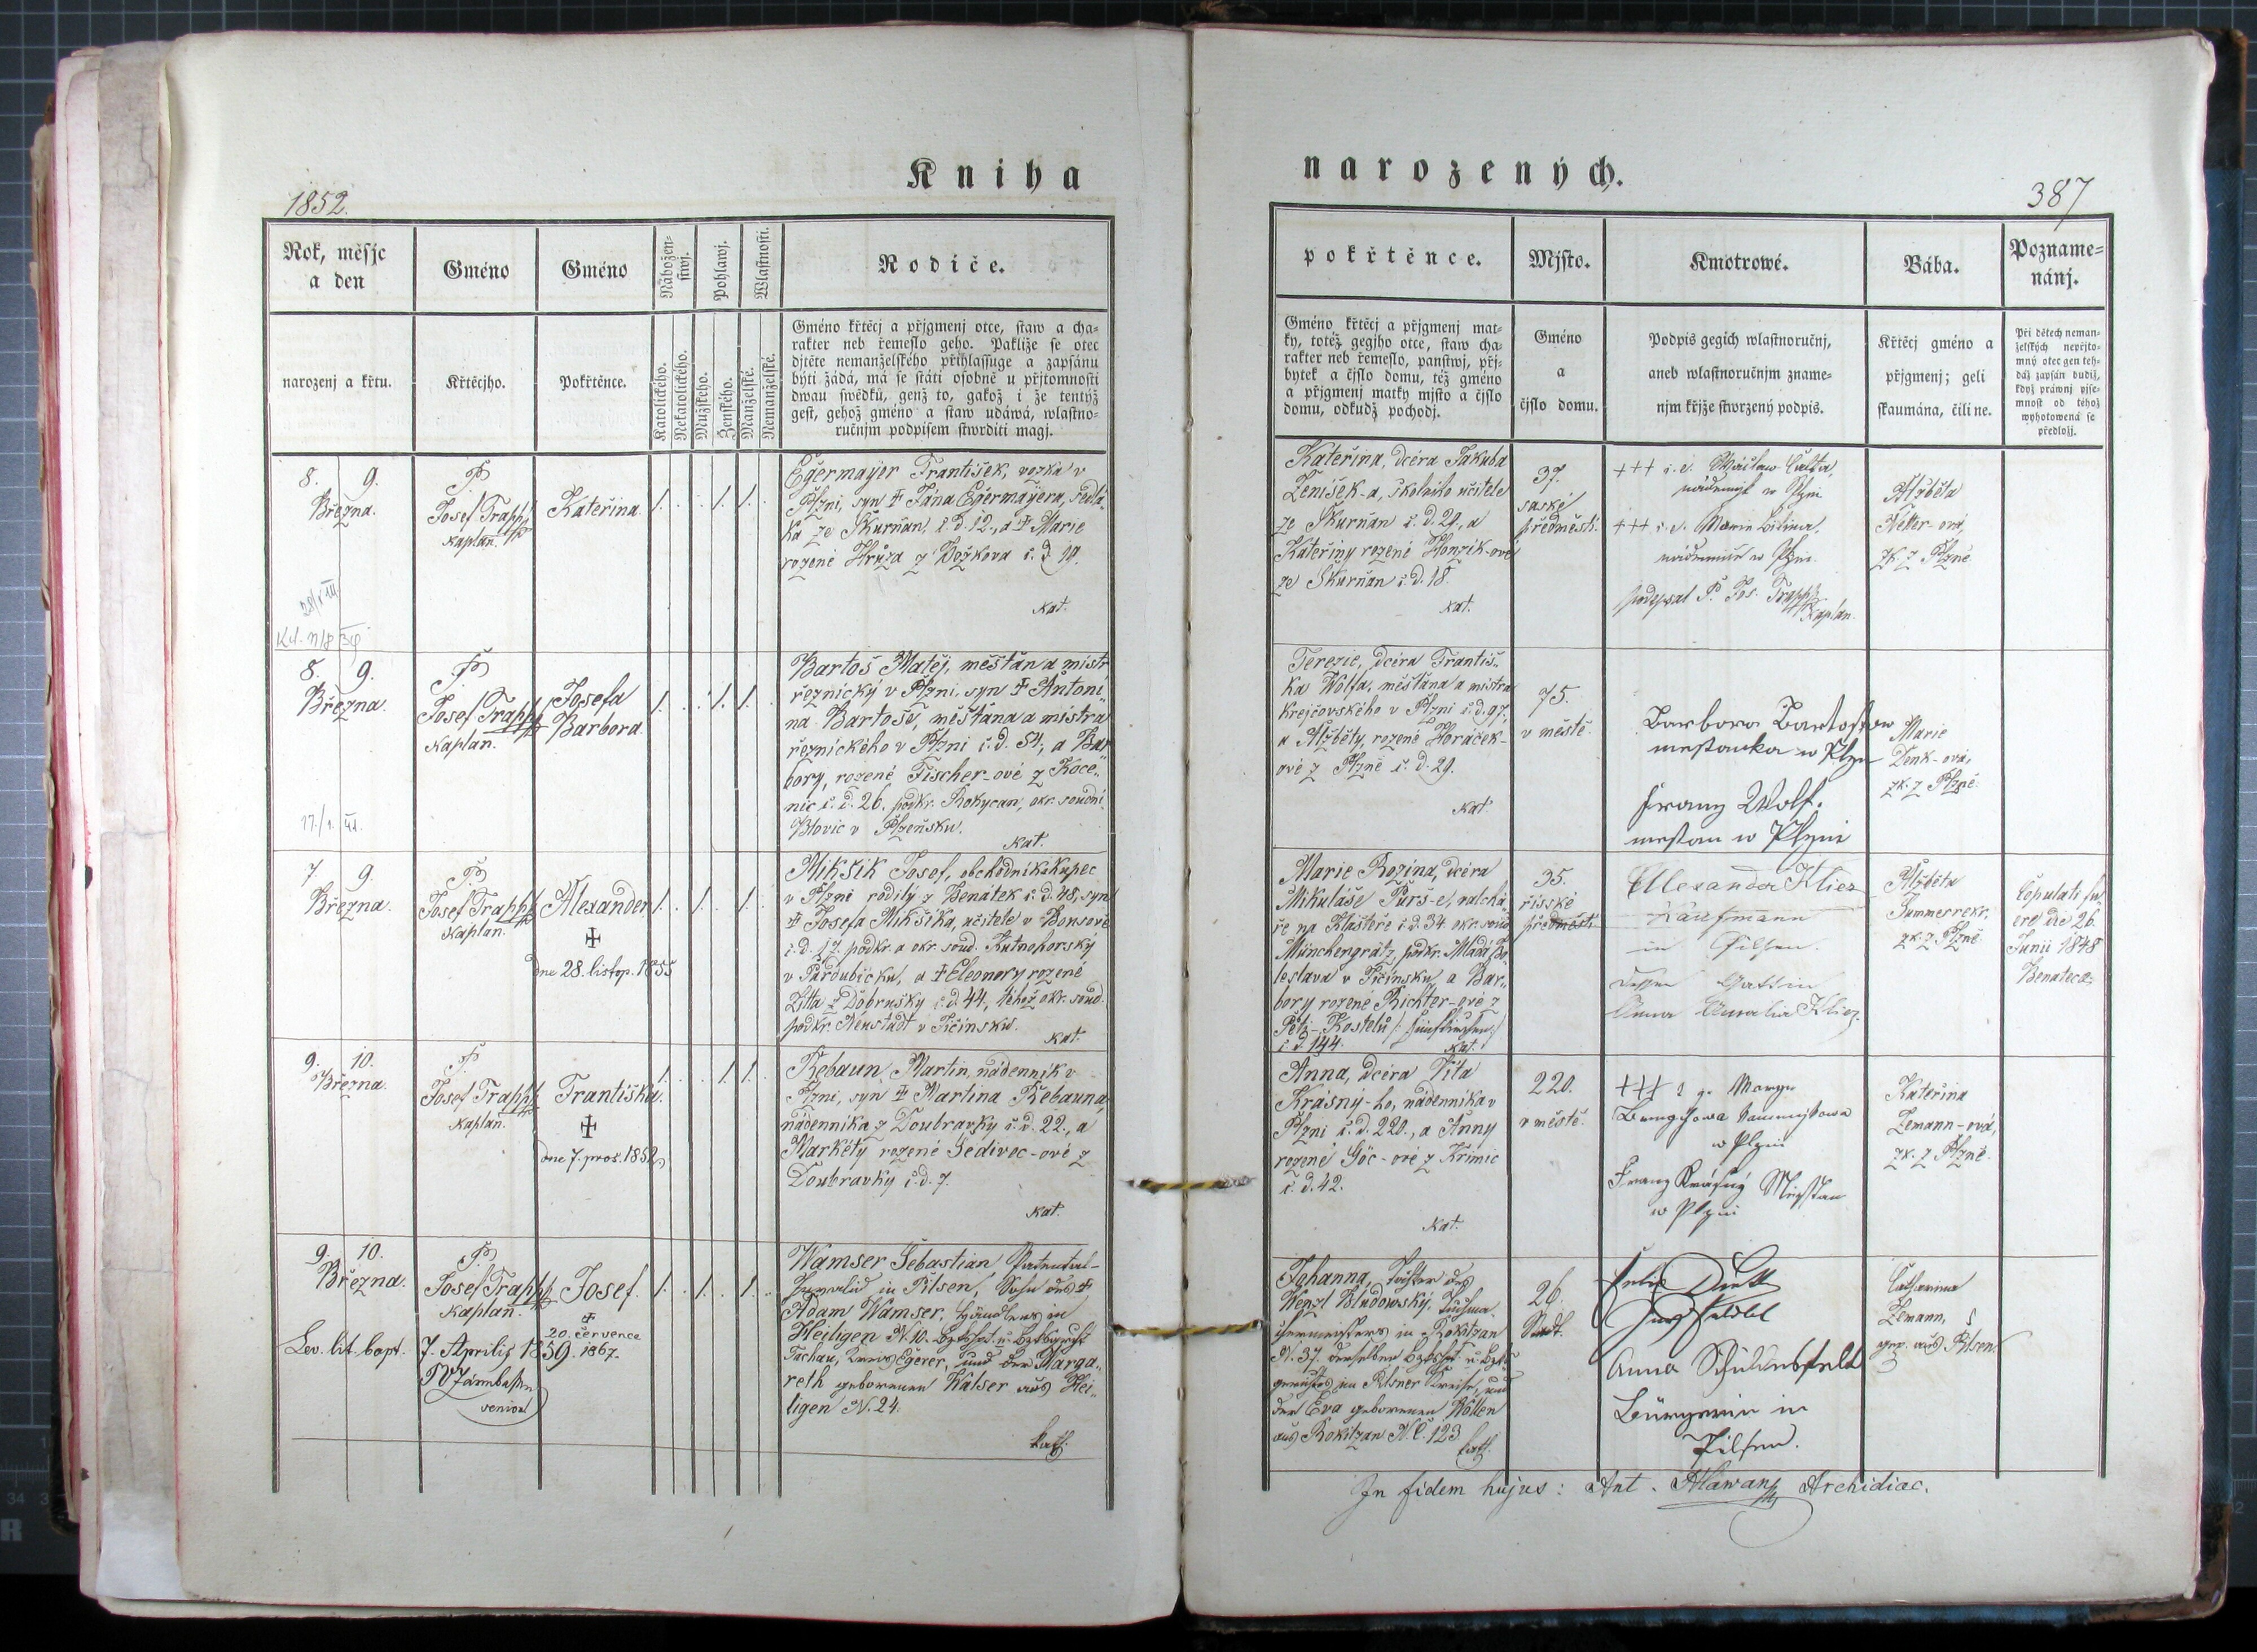 Kniha
1852.
Rok, měsjc
a den
narozenj a křtu.
Gméno
Křtěcjho.
Gméno
Pokřtěnce.
Nábožen=
stwj.
Katolického.
Nekatolického.
Pohlawj.
Mužského.
Ženského.
Wlastnosti.
Manželské.
Nemanželské.
Rodiče.
Gméno křtěcj a přjgmenj otce, staw a cha=
rakter neb řemeslo geho. Pakliže se otec
djtěte nemanželského přihlassuge a zapsánu
býti žádá, má se státi osobně u přjtomnosti
dwau swědků, genž to, gakož i že tentýž
gest, gehož gméno a staw udáwá, wlastno=
ručnjm podpisem stwrditi magj.
8. 9.
Března.
P.
Josef Trapp
kaplan.
Kateřina
Egermayer František, vozka v
Plzni, syn † Jana Egermayera, sedlá-
ka ze Skurňan, č. d. 12., a † Marie
rozené Hrůza z Božkova č. d. 19.
kat.
8. 9.
Března.
P.
Josef Trapp
Kaplan.
Josefa
Barbora
Bartoš Matěj, měšťan a mistr
řeznický v Plzni, syn † Antoni-
na Bartoše, měšťana a mistra
řeznického v Plzni č. d. 54, a Bar
bory, rozené Fischer-ové z Koce-
nic č. d. 26. podkr. Rokycan, okr. soudní
Blovic v Plzeňsku.
Kat.
7 9.
Března.
P.
Josef Trapp
Kaplan.
Alexander
dne 28. listop. 1855
Mikšik Josef, obchodník a kupec
v Plzni rodilý z Benátek č. d. 48, syn
† Josefa Mikšika, učitele v
č. d. 17 podkr. a okr. soud. Kutnohorský
v Pardubicku, a † Eleonory rozené
Zitta z Dobrušky č. d. 44, téhož okr. soud.
podkr. Neustadt v Jičínsku.
kat.
9. 10.
Března.
P.
Josef Trapp
Kaplan.
Františka.
dne 7. pros. 1852
Řebaun Martin, nádenník v
Plzni, syn † Martina Řebauna,
nádenníka z Doubravky č. d. 22., a
Markéty rozené Šedivec-ové z
Doubravky č. d. 7.
kat.
9. 10.
Března.
P.
Josef Trapp
kaplan.
Josef.
20. července
1867.
Lev. lit. bapt. 7. Aprilis 1859.
senior
Wamser Sebastian, Patental-
Invalid in Pilsen, Sohn des †
Adam Wamser, Händlers in
Heiligen N. 10. Bzkshpt. u. Bzksgericht
Tachau, Kreis Egerer, und der Marga-
reth geborenen Walser aus Hei-
ligen N. 24.
kath.
narozených.
387
pokřtěnce.
Gméno křtěcj a přjgmenj mat=
ky, totéž gegjho otce, staw cha=
rakter neb řemeslo, panstwj, přj=
bytek a čjslo domu, též gméno
a přjgmenj matky mjsto a čjslo
domu, odkudž pochodj.
Mjsto.
Gméno
a
čjslo domu.
Kmotrowé.
Podpis gegich wlastnoručnj,
aneb wlastnoručnjm zname=
njm křjže stwrzený podpis.
Bába.
Křtěcj gméno a
přjgmenj; geli
skaumána, čili ne.
Pozname=
nánj.
Při dětech neman=
želských nepřjto=
mný otec gen teh=
dáž zapsán budiž,
když práwnj pjse=
mnost od téhož
wyhotowená se
předložj.
Kateřina, dcéra Jakuba
Zeníšek-a, školního učitele
ze Skurňan č. d. 29., a
Kateřiny rozené Honzik-ové
ze Skurňan č. d. 18.
kat.
37.
saské
předměstí.
+++ Marie
podepsal P. Jos. Trapp
Kaplan.
Alžběta
zk. z Plzně
Terezie, dcéra Františ-
ka Wolfa, měšťana a mistra
krejčovského v Plzni č. d. 97,
a Alžběty, rozené Horáček-
ové z Plzně č. d. 29.
kat.
75.
v městě.
Barbora Bartossow
mestanka w Plzn
Franz Wolf.
mestan w Plzni
Marie
Denk-ová,
zk. z Plzně.
Marie Rozina, dcéra
Mikuláše Purš-e, valchá-
ře na Klášteře č. d. 34. okr. soud
Münchengrätz, podkr. Mladá Bo-
leslava v Jičínsku, a Bar-
bory rozené Richter-ové z
Pěti-Kostelů /: Fünfkirchen :/
č. d. 144. kat.
35.
řišské
předměstí
Alexander Kliez
Kaufmann
in Pilsen.
dessen Gattin
Anna Amalia Kliez.
Alžběta
zk. z Plzně
Copulati fu-
ere die 26.
Junii 1848
Benatecæ
Anna, dcéra Víta
Krásny-ho, nádenníka v
Plzni č. d. 220., a Anny
rozené Göc-ové z Krimic
č. d. 42.
kat.
220.
v městě.
w Plzni
Franz Krásný
w Plzni
Kateřina
Zemann-ová,
zk. z Plzně.
Johanna, Tochter des
Wenzl Bludowský, Tuchma-
chermeisters in Rokitzan
N. 37. derselben Bzkshpt. u. Bzks-
gerichtes im Pilsner Kreise, und
der Eva geborenen Köllen
aus Rokitzan N. C. 123
kath.
26.
Stadt.
Anna
Bürgerin in
Pilsen.
Catharina
Zemann,
gep. aus Pilsen.
In fidem hujus: Ant. Hlawan Archidiac.